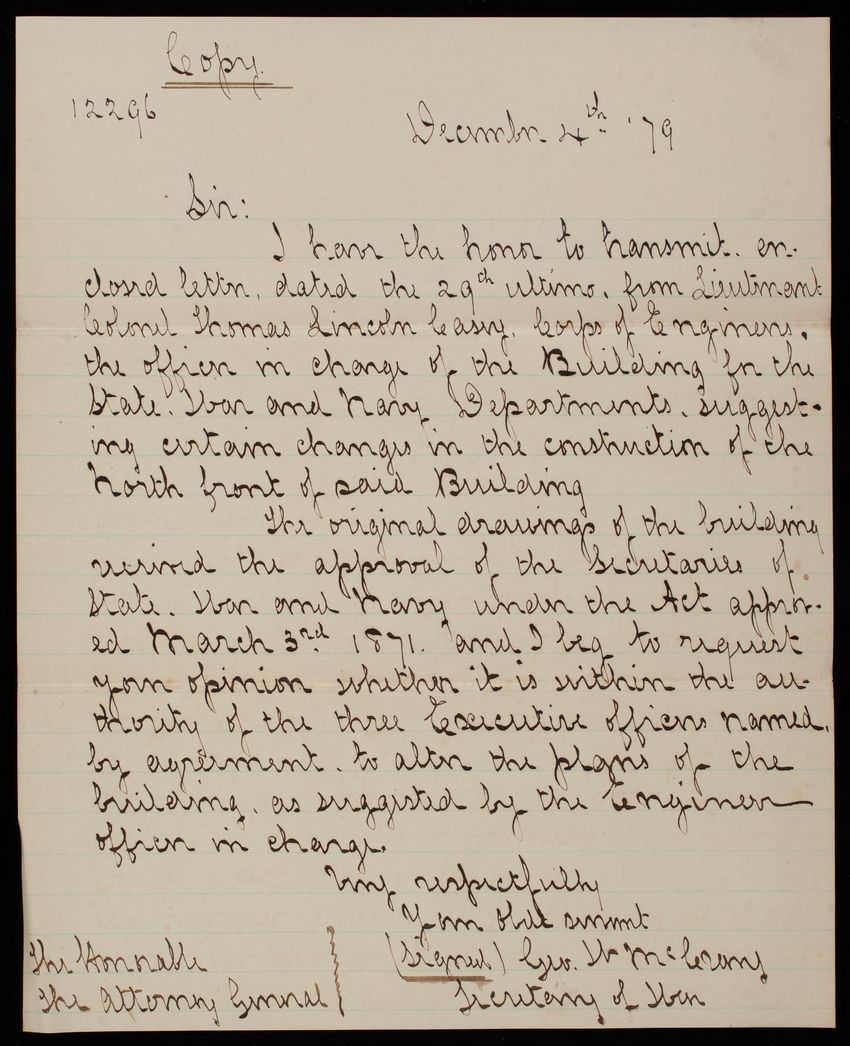 Copy.
12296
December 4th '79
Sir:
I have the honor to transmit, en-
closed letter, dated the 29th ultimo, from Lieutenant
Colonel Thomas Lincoln Casey, Corps of Engineers,
the officer in charge of the Building for the
State, War and Navy Departments, suggest-
ing certain changes in the construction of the
North front of said Building
The original drawings of the building
received the approval of the Secretaries of
State, War and Navy under the Act approv-
ed March 3rd 1871, and I beg to request
your opinion whether it is within the au-
thority of the three Executive officers named,
by agreement, to alter the plans of the
building, as suggested by the Engineer
officer in charge.
Very respectfully
Your Obdt servant
(Signed) Geo. W McCrary
Secretary of War
The Honorable
The Attorney General